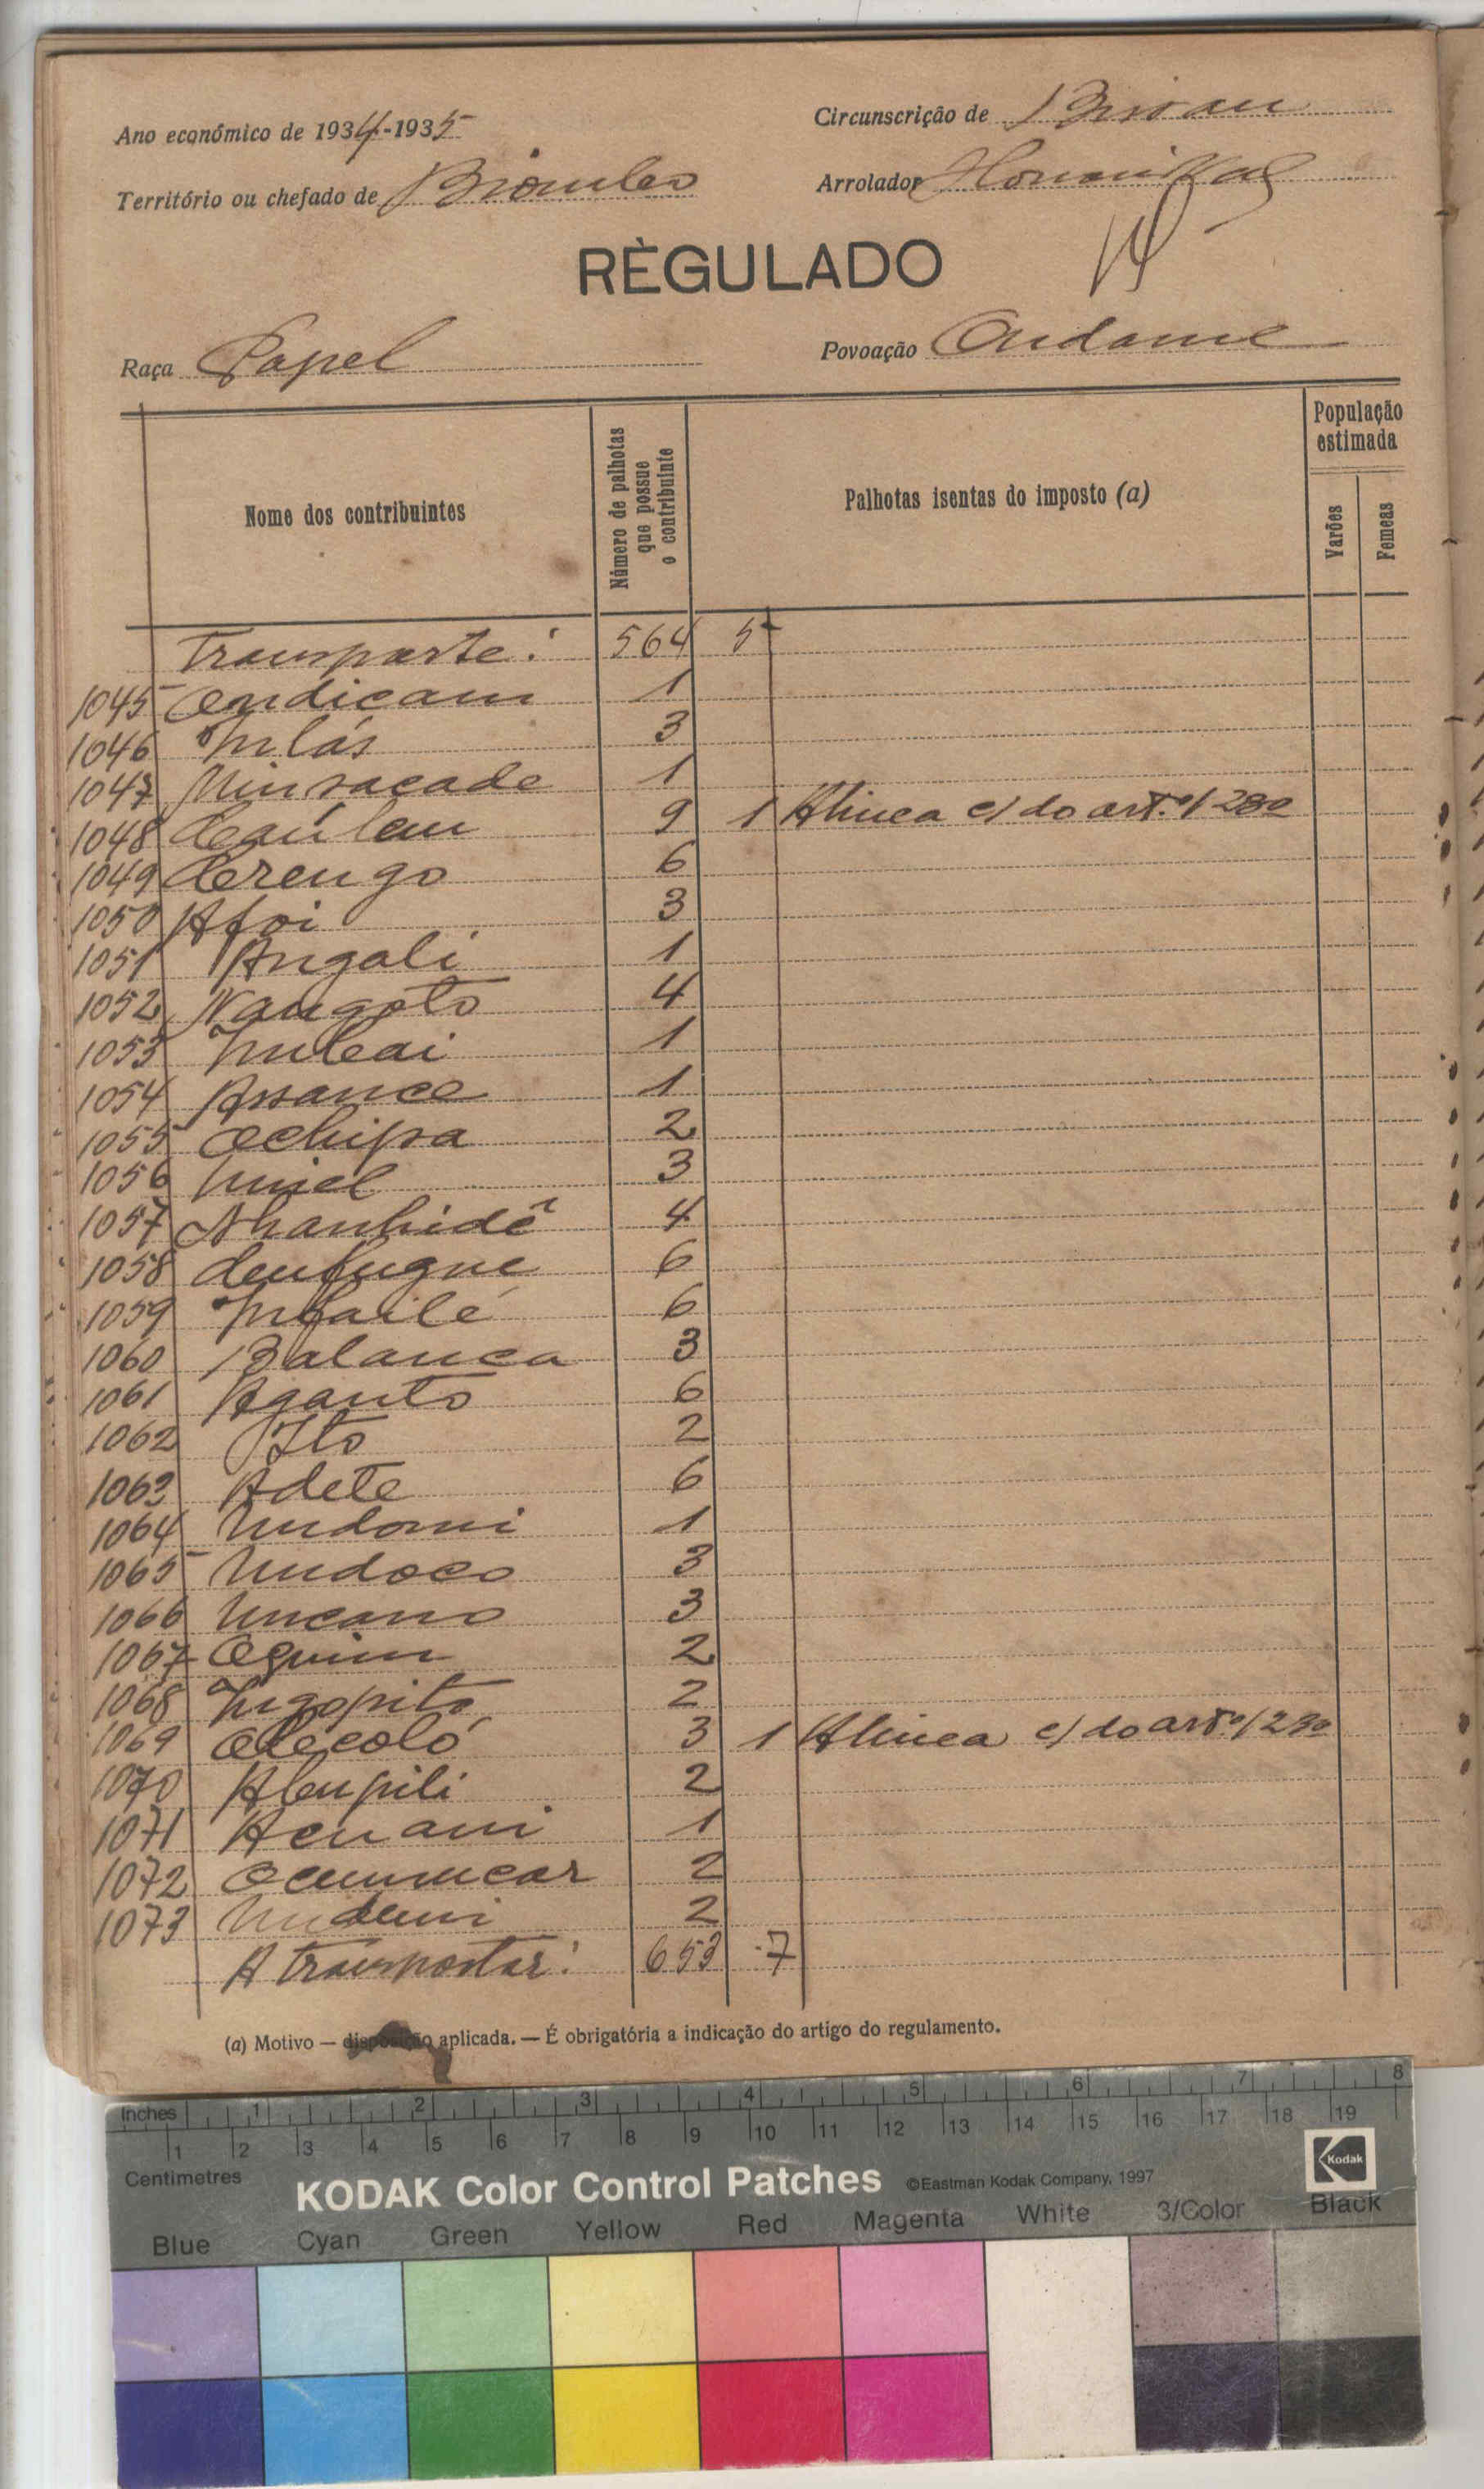 Ano económico de 1934-1935
Circunscrição de Bissau
Território ou chefado de Biombo
Arrolador
RÈGULADO
Raça Papel
Povoação Ondame
Nome dos contribuintes
Número de palhotas que possue o contribuinte
Palhotas isentas do imposto (a)
População estimada
Varões
Femeas
Transporte: 564 5
1045 Ondicam 1
1046 Inlás 3
1047 Minsacade 1
1048 9 1 Alinea c/ do art.º 128º
1049 6
1050 Afoi 3
1051 Angali 1
1052 Nangoto 4
1053 1
1054 Assance 1
1055 Ochipa 2
1056 3
1057 Nhanhidê 4
1058 6
1059 6
1060 Balanca 3
1061 Aganto 6
1062 Ito 2
1063 Adete 6
1064 Undomi 1
1065 Undoco 3
1066 Uncano 3
1067 Oquim 2
1068 2
1069 3 1 Alinea c/ do artº 123º
1070 2
1071 1
1072 2
1073 2
A transportar: 653 7
(a) Motivo — disposição aplicada. — É obrigatória a indicação do artigo do regulamento.
Inches 1 2 3 4 5 6 7 8
1 2 3 4 5 6 7 8 9 10 11 12 13 14 15 16 17 18 19
Centimetres
KODAK Color Control Patches ©Eastman Kodak Company, 1997
Kodak
Blue Cyan Green Yellow Red Magenta White 3/Color Black